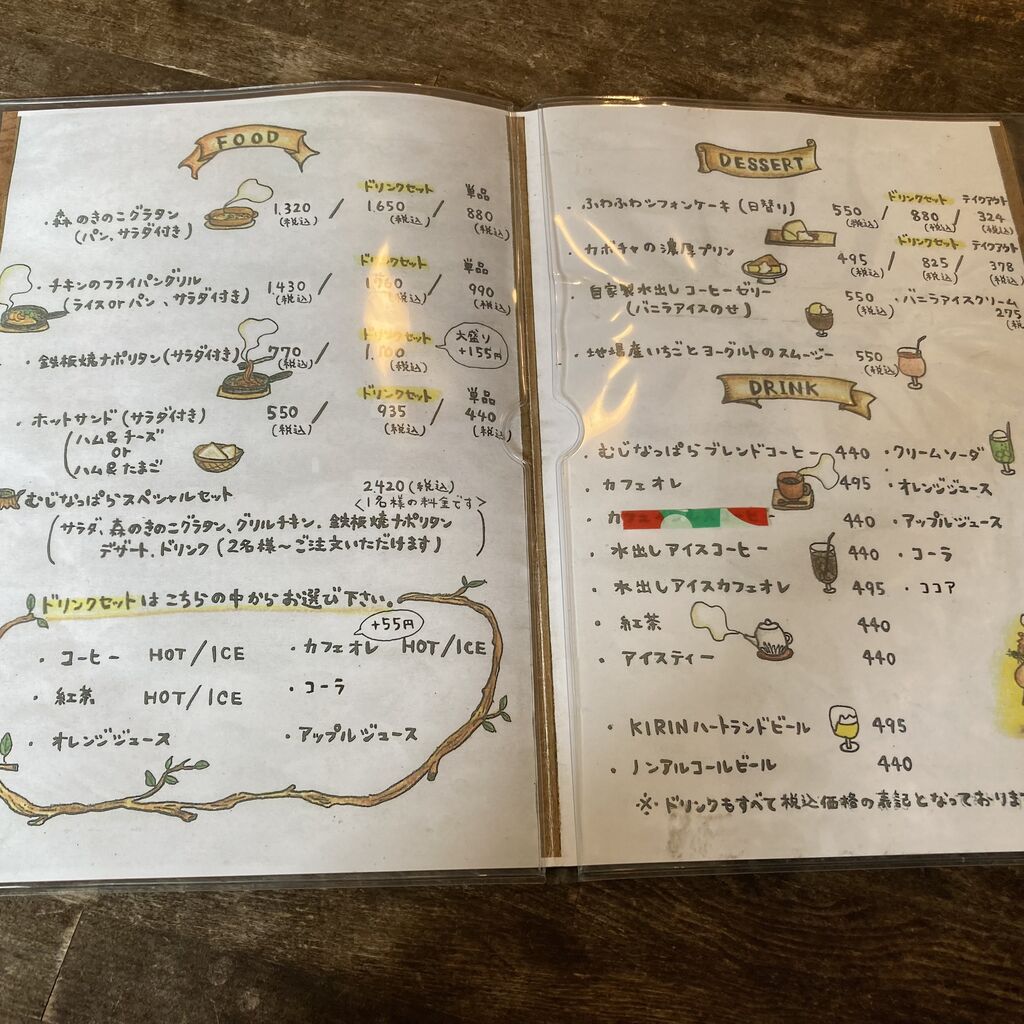 FOOD
ドリンクセット 単品
・森のきのこグラタン 1,320 / 1,650 / 880
(パン、サラダ付き) (税込) (税込) (税込)
ドリンクセット 単品
・チキンのフライパングリル 1,430 / / 990
(ライスorパン、サラダ付き) (税込) (税込) (税込)
ドリンクセット 大盛り +155円
・鉄板焼ナポリタン(サラダ付き) 770 /
(税込) (税込)
ドリンクセット 単品
・ホットサンド(サラダ付き) 550 / 935 / 440
(税込) (税込) (税込)
(ハム&チーズ
or
ハム&たまご
むじなっぱらスペシャルセット 2,420(税込)
<1名様の料金です>
(サラダ、森のきのこグラタン、グリルチキン、鉄板焼ナポリタン
デザート、ドリンク(2名様~ご注文いただけます))
ドリンクセットはこちらの中からお選び下さい。
+55円
・コーヒー HOT/ICE ・カフェオレ HOT/ICE
・紅茶 HOT/ICE ・コーラ
・オレンジジュース ・アップルジュース
DESSERT
ドリンクセット テイクアウト
・ふわふわシフォンケーキ(日替り) 550 / 880 / 324
(税込) (税込) (税込)
ドリンクセット テイクアウト
・カボチャの濃厚プリン 495 / 825 / 378
(税込) (税込) (税込)
・自家製水出しコーヒーゼリー 550 ・バニラアイスクリーム
(バニラアイスのせ) (税込) 275
・地場産いちごとヨーグルトのスムージー 550
(税込)
DRINK
・むじなっぱらブレンドコーヒー 440 ・クリームソーダ
・カフェオレ 495 ・オレンジジュース
440 ・アップルジュース
・水出しアイスコーヒー 440 ・コーラ
・水出しアイスカフェオレ 495 ・ココア
・紅茶 440
・アイスティー 440
・KIRINハートランドビール 495
・ノンアルコールビール 440
※・ドリンクもすべて税込価格の表記となっております